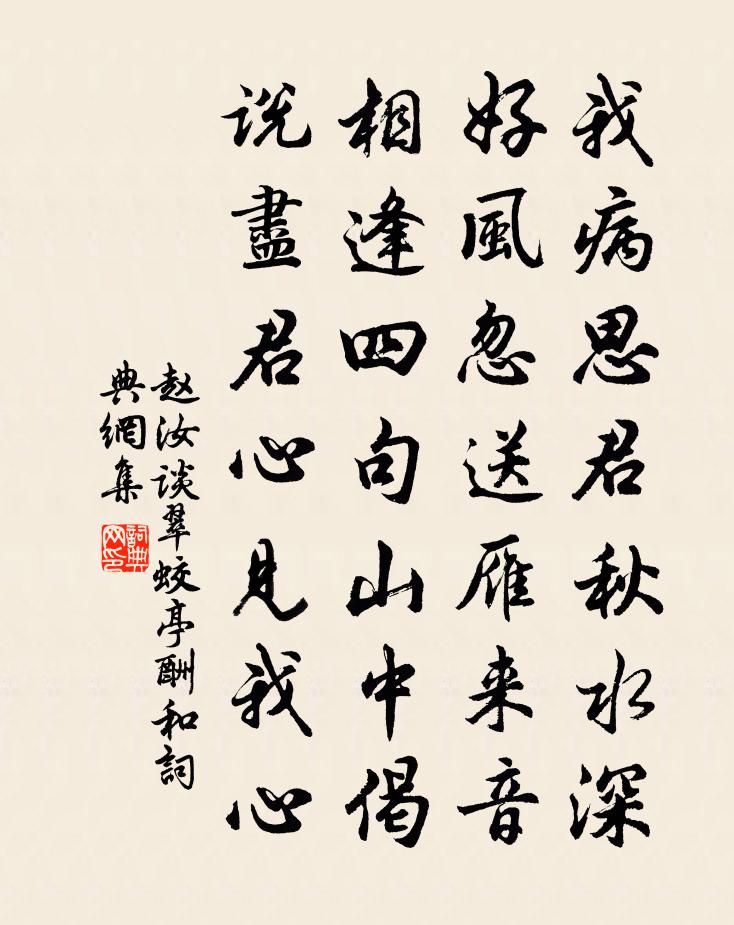 我病思君秋水深
好風忽送雁来音
相逢四句山中偈
説盡君心見我心
赵汝谈翠蛟亭酬和詞
典網集
詞典
网印